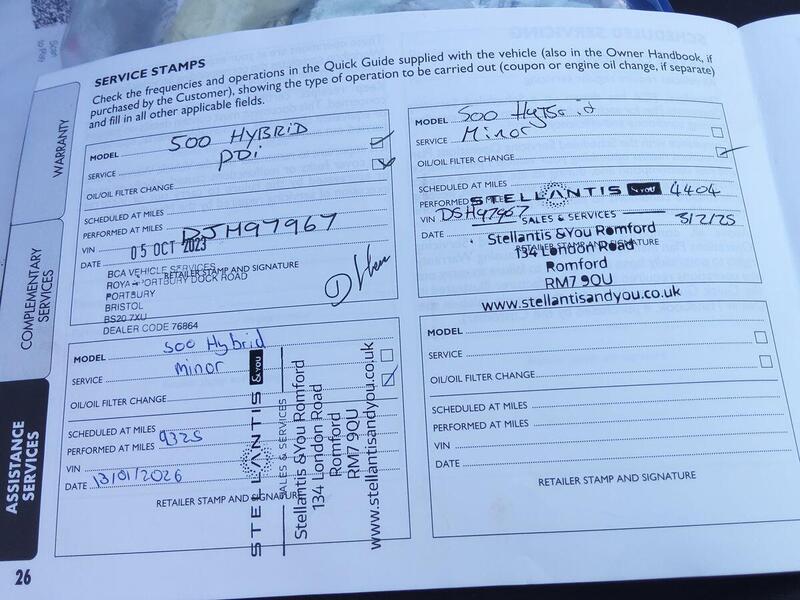 SERVICE STAMPS
Check the frequencies and operations in the Quick Guide supplied with the vehicle (also in the Owner Handbook, if
purchased by the Customer), showing the type of operation to be carried out (coupon or engine oil change, if separate)
and fill in all other applicable fields.
WARRANTY
COMPLEMENTARY
SERVICES
ASSISTANCE
SERVICES
MODEL 500 HYBRID
SERVICE PDi
OIL/OIL FILTER CHANGE
SCHEDULED AT MILES
PERFORMED AT MILES
VIN DJH97967
DATE 05 OCT 2023
BCA VEHICLE SERVICES
RETAILER STAMP AND SIGNATURE
ROYAL PORTBURY DOCK ROAD
PORTBURY
BRISTOL
BS20 7XU
DEALER CODE 76864
MODEL 500 Hybrid
SERVICE Minor
OIL/OIL FILTER CHANGE
SCHEDULED AT MILES
PERFORMED 4404
STELLANTIS &YOU
VIN
SALES & SERVICES
DATE 3/2/25
Stellantis &You Romford
RETAILER STAMP AND SIGNATURE
134 London Road
Romford
RM7 9QU
www.stellantisandyou.co.uk
MODEL 500 Hybrid
SERVICE minor
OIL/OIL FILTER CHANGE
SCHEDULED AT MILES
PERFORMED AT MILES 9325
VIN
DATE 13/01/2026
RETAILER STAMP AND SIGNATURE
STELLANTIS &YOU
SALES & SERVICES
Stellantis &You Romford
134 London Road
Romford
RM7 9QU
www.stellantisandyou.co.uk
MODEL
SERVICE
OIL/OIL FILTER CHANGE
SCHEDULED AT MILES
PERFORMED AT MILES
VIN
DATE
RETAILER STAMP AND SIGNATURE
26